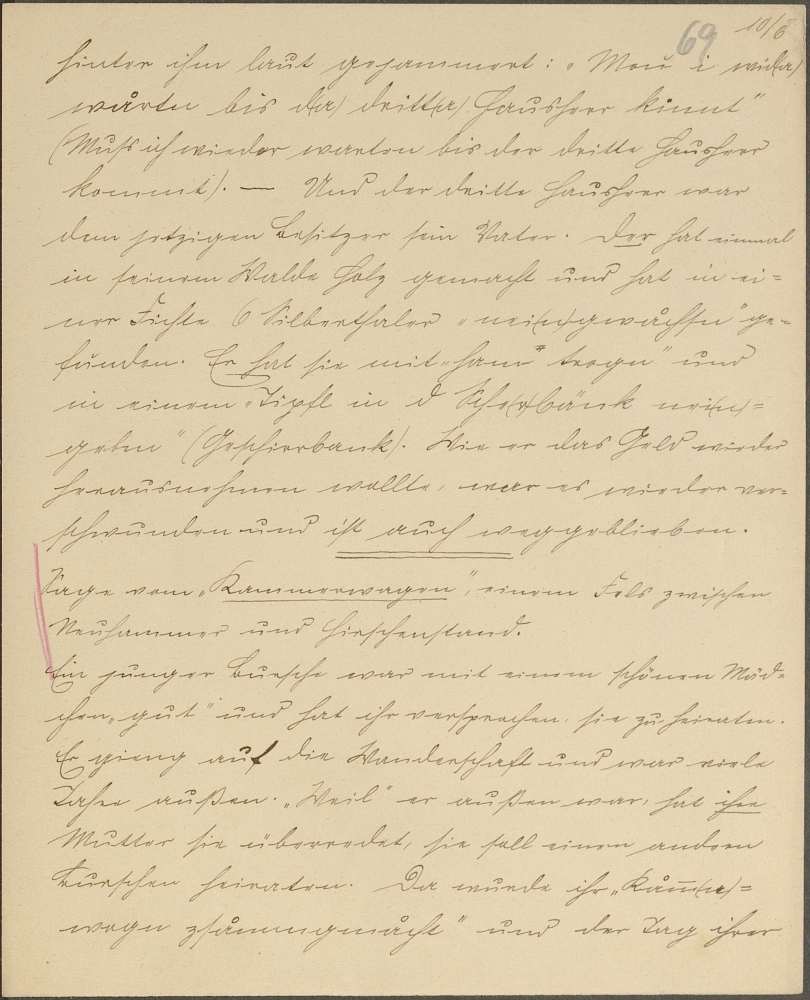 69 10/6
hinter ihm laut gejammert: „Mou i wid(a)
wårtn bis d(a) dritt(a) Haushear kimnt"
(Muß ich wieder warten bis der dritte Hausherr
kommt). — Und der dritte Hausherr war
dem jetzigen Besitzer sein Vater. Der hat einmal
in seinem Walde Holz gemacht und hat in ei=
ner Fichte 6 Silberthaler „nei(n)gwåchsn" ge=
funden. Er hat sie mit „ham trogn" und
in einem „Tipfl in d' Sche(r)bänk nei(n)=
gebm" (Geschirrbank). Wie er das Geld wieder
herausnehmen wollte, war es wieder ver=
schwunden und ist auch weggeblieben.
Sage vom „Kammerwagen", einem Fels zwischen
Neuhammer und Hirschenstand.
Ein junger Bursche war mit einem schönen Mäd=
chen „gut" und hat ihr versprochen, sie zu heiraten.
Er gieng auf die Wanderschaft und war viele
Jahre außen. „Weil" er außen war, hat ihre
Mutter sie überredet, sie soll einen andern
Burschen heiraten. Da wurde ihr „Kåmm(a)=
wogn zsåmmgmåcht" und der Tag ihrer